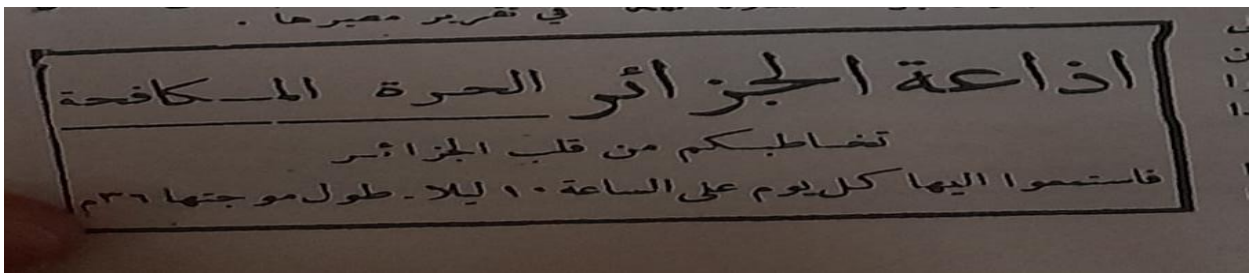 في تقرير مصيرها .
اذاعة الجزائر الحرة المكافحة
تخاطبكم من قلب الجزائر
فاستمعوا اليها كل يوم على الساعة ١٠ ليلا - طول موجتها ٣٦م